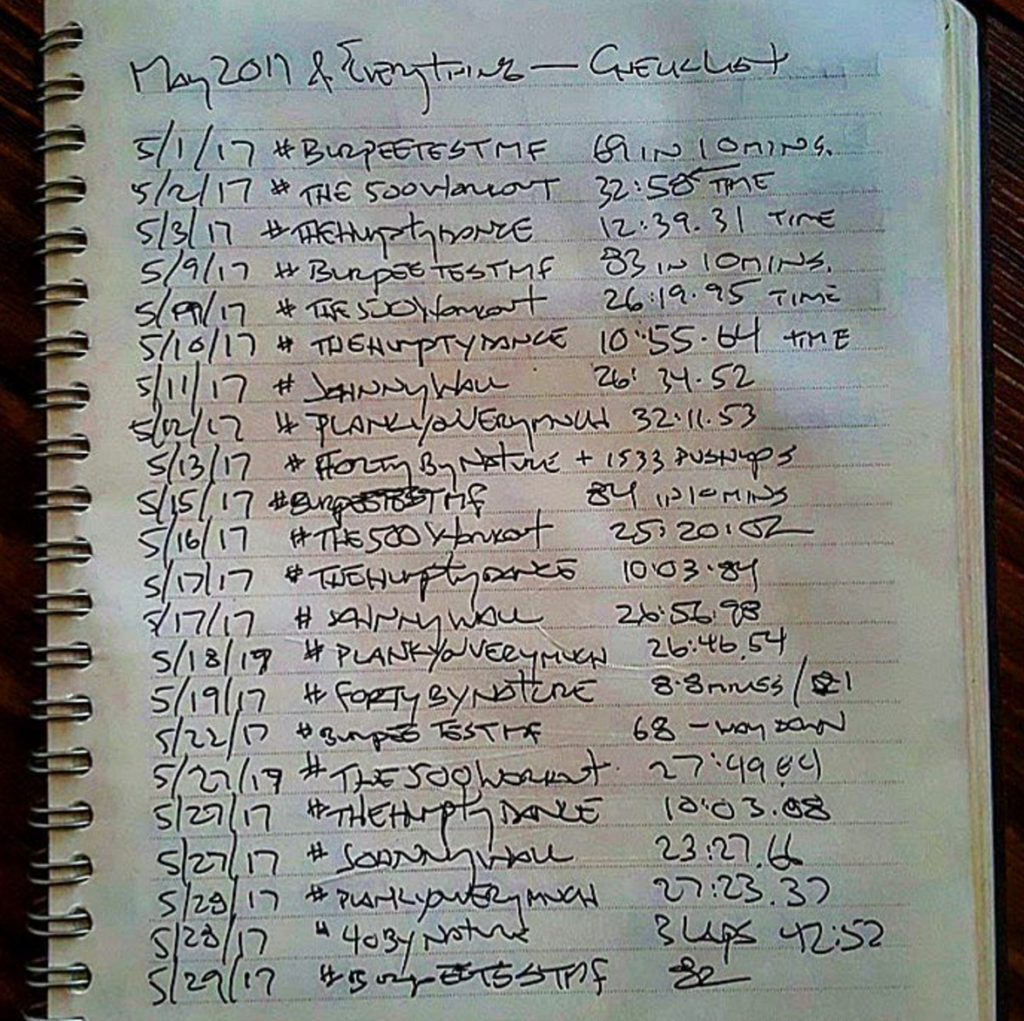 May 2017 & Everything — Checklist
5/1/17 #BURPEETESTMF 69 IN 10 MINS.
5/2/17 #THE500WORKOUT 32:58 TIME
5/3/17 #THEHUMPTYDANCE 12:39.31 TIME
5/9/17 #BURPEETESTMF 83 IN 10 MINS.
#THE500WORKOUT 26:19.95 TIME
5/10/17 #THEHUMPTYDANCE 10:55.64 TIME
5/11/17 26:34.52
#PLANKYOUVERYMUCH 32:11.53
5/13/17 #FORTYBYNATURE + 1533 PUSHUPS
5/15/17 #BURPEETESTMF 84 IN 10 MINS
5/16/17 #THE500WORKOUT 25:20:02
5/17/17 #THEHUMPTYDANCE 10:03.84
5/17/17 26:56.98
5/18/17 #PLANKYOUVERYMUCH 26:46.54
5/19/17 #FORTYBYNATURE 8.8 MILES /
5/22/17 #BURPEETESTMF 68 - WAY DOWN
#THE500WORKOUT 27:49
5/27/17 #THEHUMPTYDANCE 10:03.88
5/27/17 23:27.66
5/28/17 #PLANKYOUVERYMUCH 27:23.37
5/28/17 40ByNature 3 Laps 42:52
5/29/17 #BURPEETESTMF 82